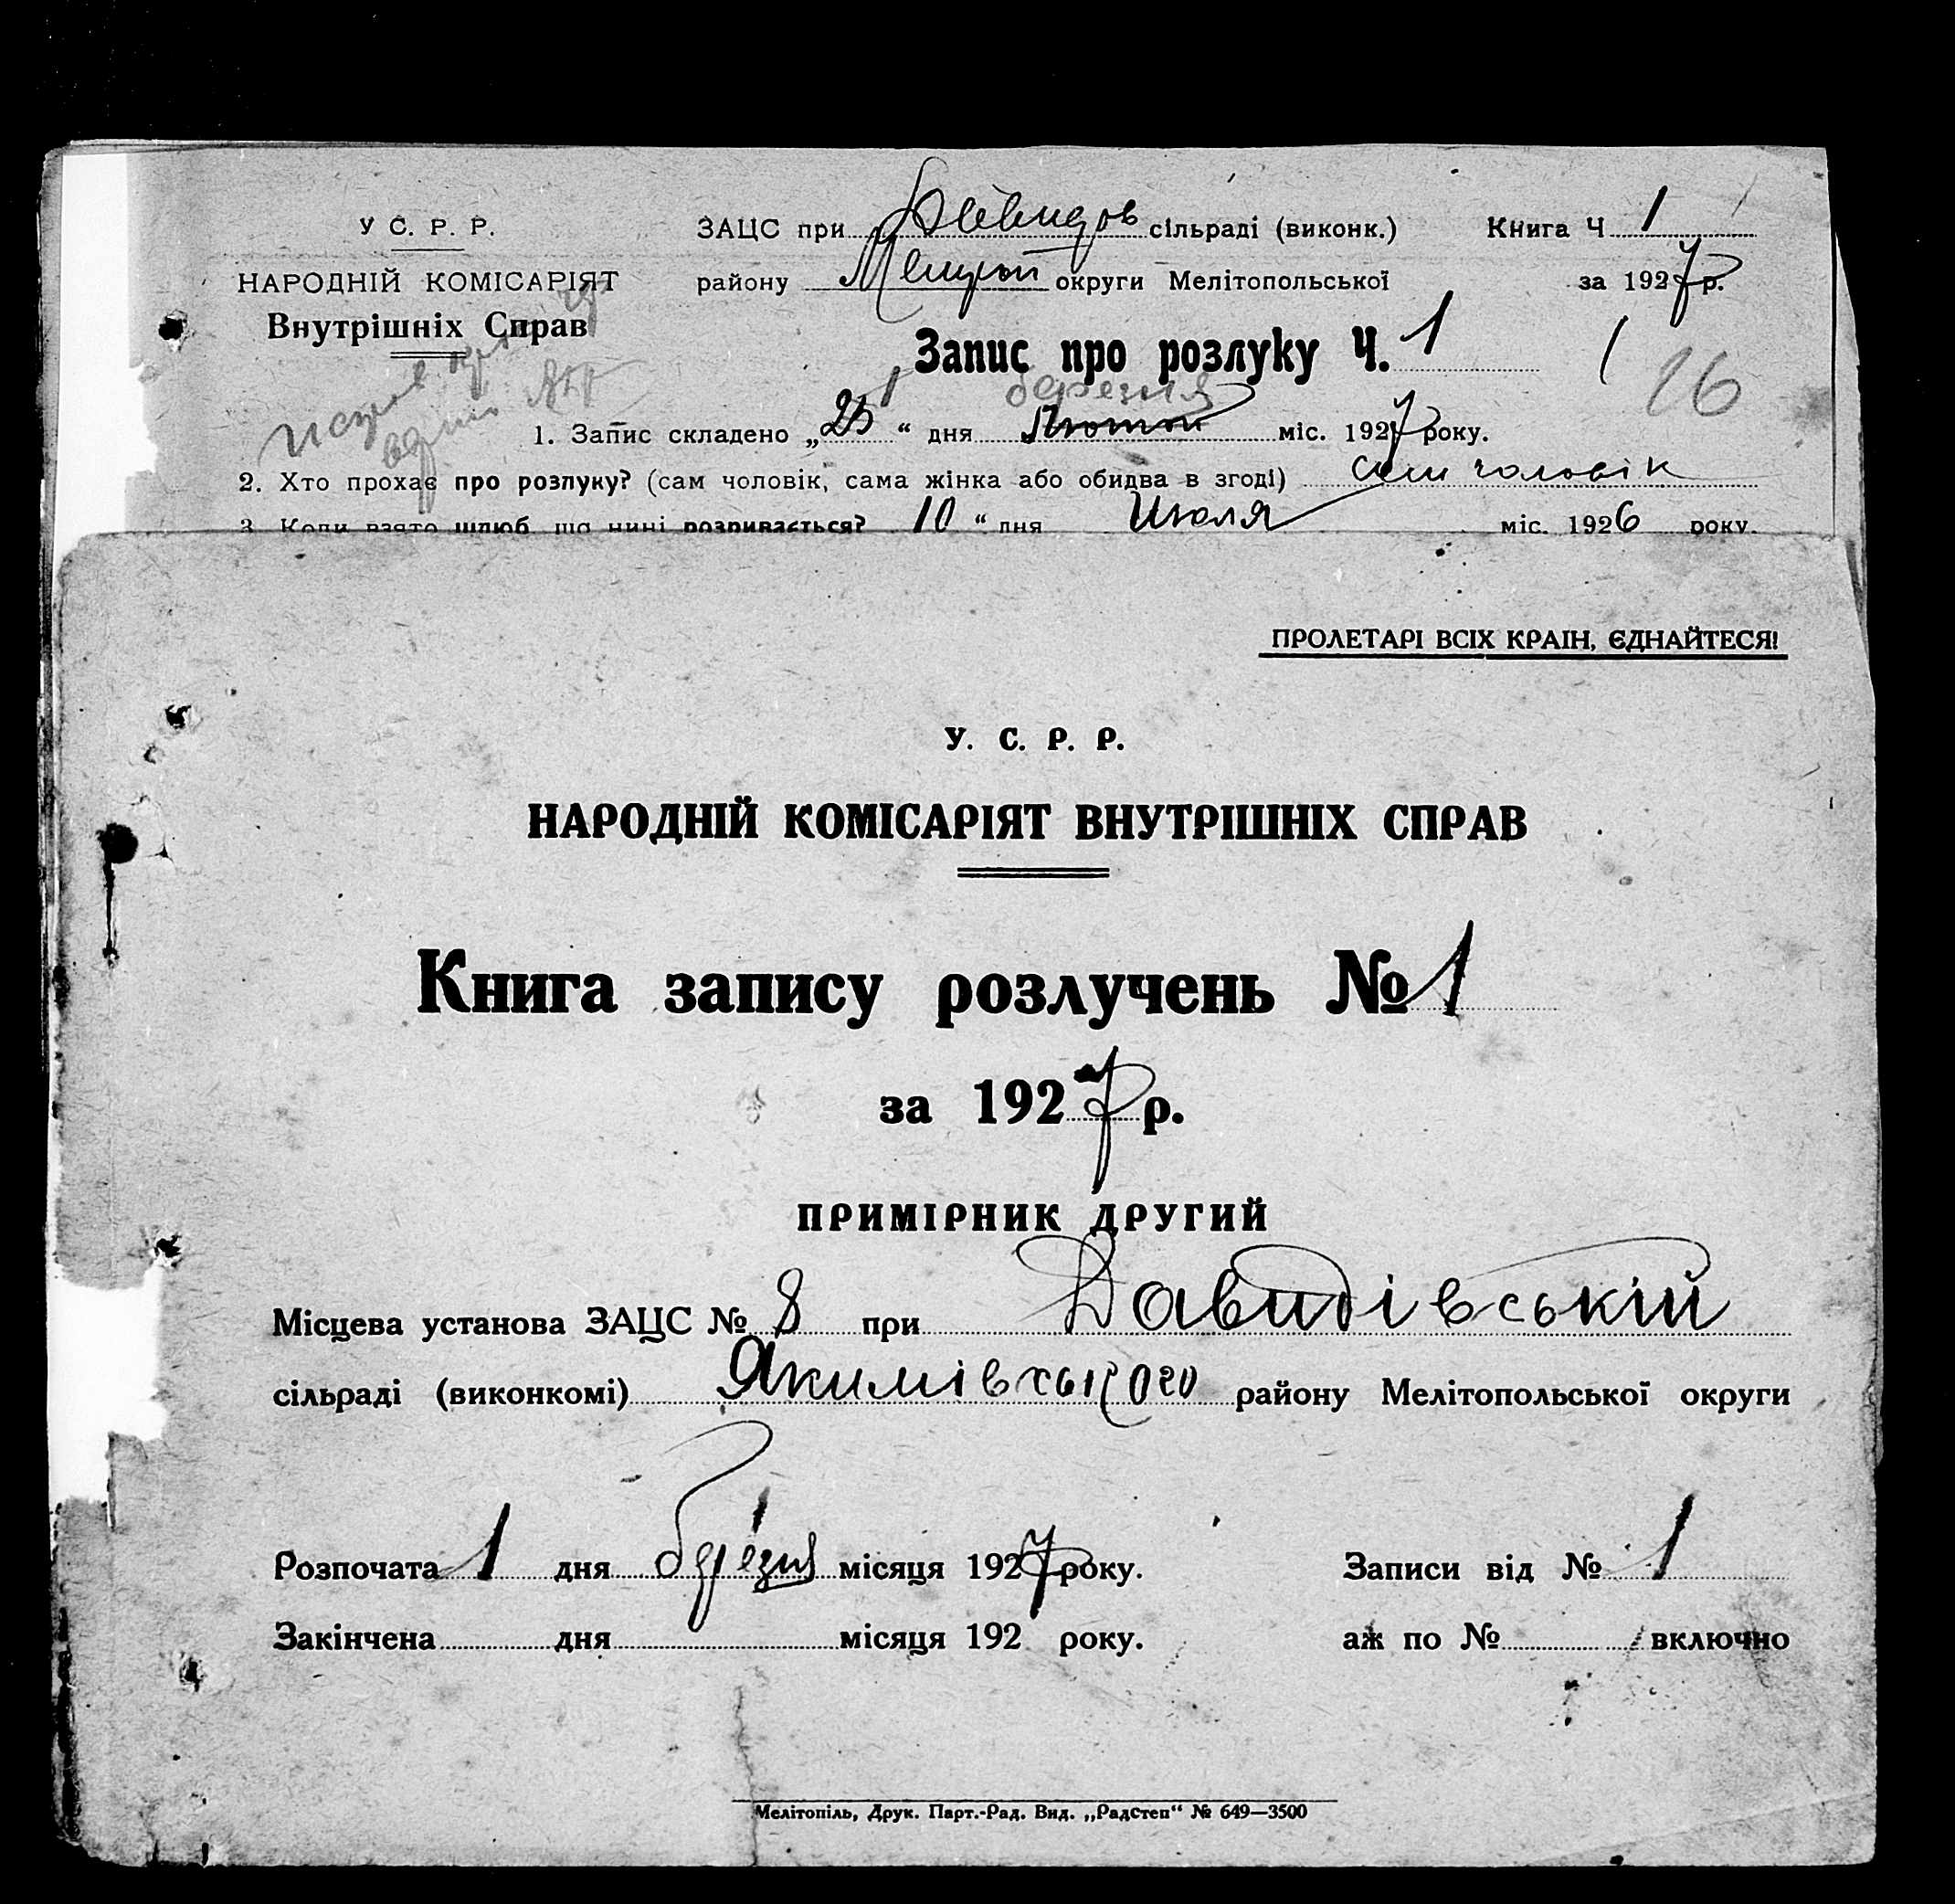 У С. Р. Р.
НАРОДНІЙ КОМІСАРІЯТ
Внутрішніх Справ
ЗАЦС при Давидов сільраді (виконк.)
Книга Ч 1
району Мелітоп округи Мелітопольської
за 1927 р.
Запис про розлуку Ч. 1
16
березня
1. Запис складено „25“ дня Лютого міс. 1927 року.
2. Хто прохає про розлуку? (сам чоловік, сама жінка або обидва в згоді) сам чоловік
3. Коли взято шлюб, що нині розривається? 10 “ дня Июля міс. 1926 року.
ПРОЛЕТАРІ ВСІХ КРАІН, ЄДНАЙТЕСЯ!
У. С. Р. Р.
НАРОДНІЙ КОМІСАРІЯТ ВНУТРІШНІХ СПРАВ
Книга запису розлучень № 1
за 1927 р.
ПРИМІРНИК ДРУГИЙ
Місцева установа ЗАЦС № 8 при Давидівській
сільраді (виконкомі) Якимівського району Мелітопольської округи
Розпочата 1 дня березня місяця 1927 року.
Записи від № 1
Закінчена дня місяця 192 року.
аж по № включно
Мелітопіль, Друк. Парт.-Рад. Вид. „Радстеп“ № 649—3500